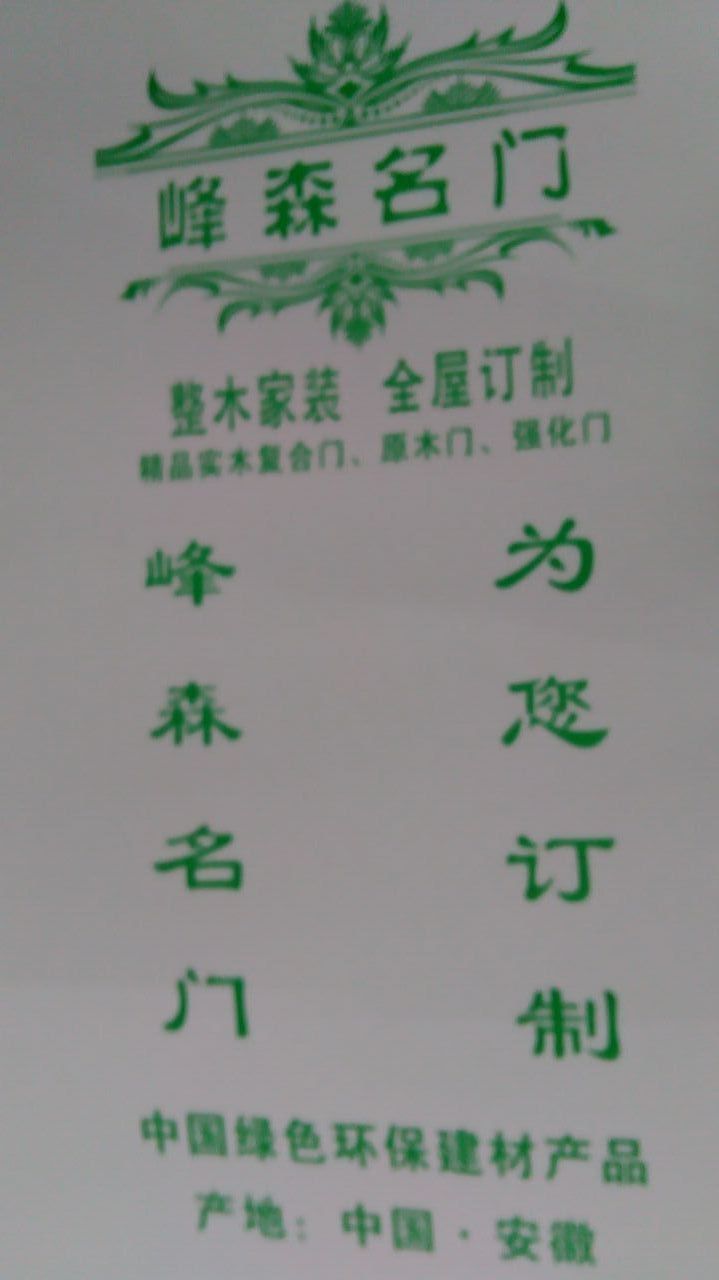 峰森名门
整木家装 全屋订制
精品实木复合门、原木门、强化门
峰森名门
为您订制
中国绿色环保建材产品
产地：中国·安徽